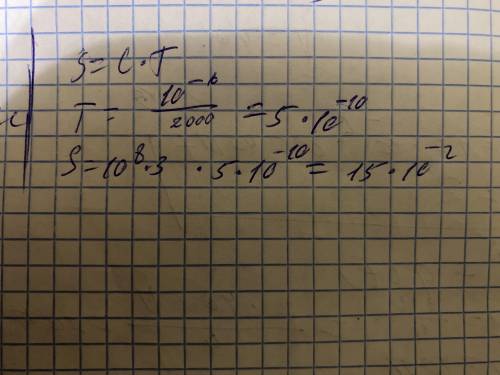 S = C · T
T = 10⁻⁶ / 2000 = 5 · 10⁻¹⁰
S = 10⁸ · 3 · 5 · 10⁻¹⁰ = 15 · 10⁻²